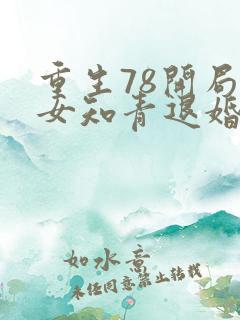 重生78開局
女知青退婚
如水意
未经同意禁止转载